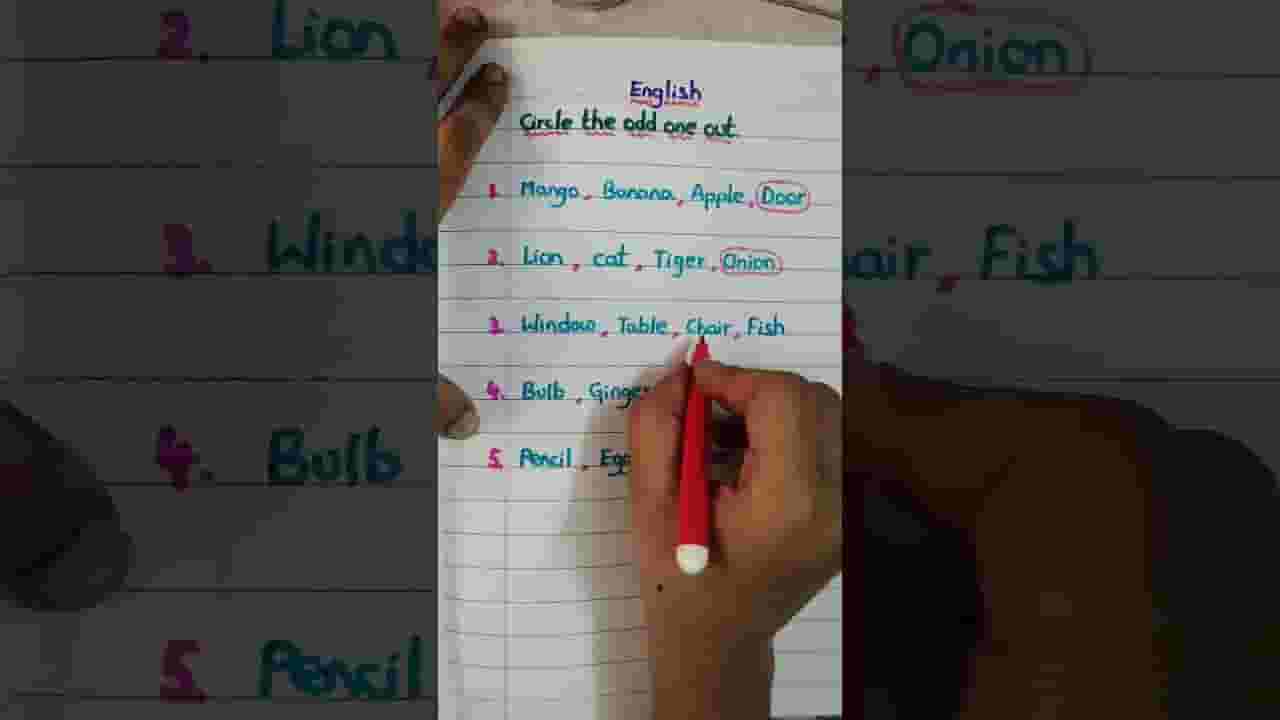 English
Circle the odd one out
1. Mango, Banana, Apple, Door
2. Lion, cat, Tiger, Onion
3. Window, Table, Chair, Fish
4. Bulb, Ginger
5. Pencil,